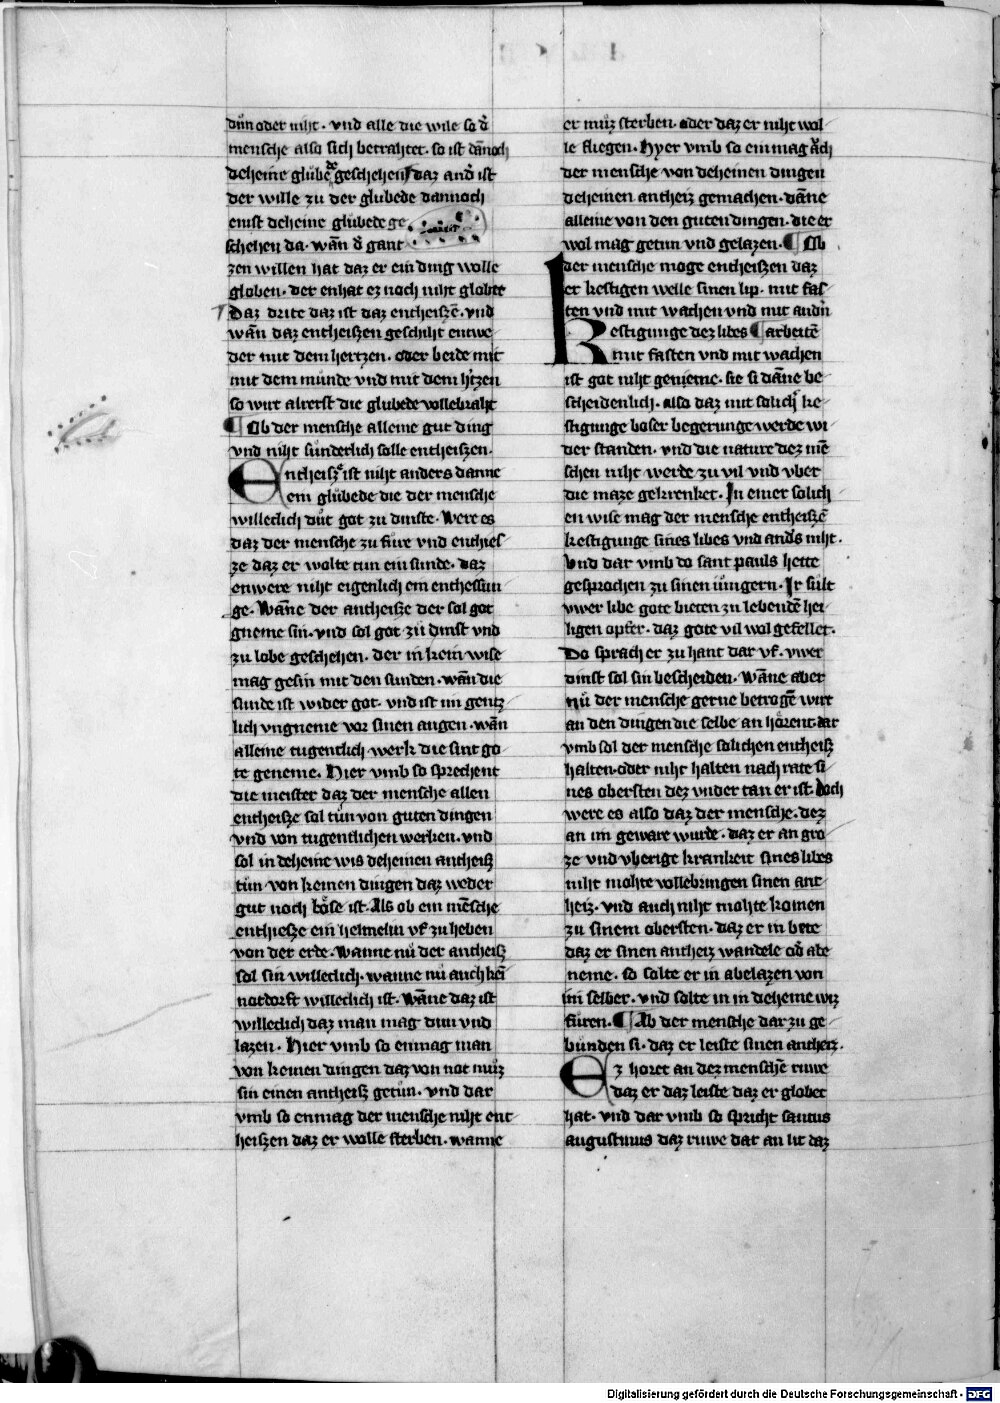 důn oder niht · vnd alle die wile so d͛
mensche also sich betrahtet · so ist dãnoch
deheine glůbede geschehen daz and͛ ist
der wille zu der glubede dannoch
enist deheine glubede ge
schehen da · wãn d͛ gant
zen willen hat daz er ein ding wolle
globen · der enhat ez noch niht globte
Daz drite daz ist daz entheiszē · vnd
wãn daz entheiszen geschiht entwe
der mit dem hertzen · oder beide mit
mit dem munde vnd mit dem h͛tzen
so wirt alrerst die glubede vollebraht
¶ Ob der mensche alleine gut ding
vnd niht sunderlich solle entheiszen ·
Entheisz͛ ist niht anders danne
ein glubede die der mensche
willeclich důt got zu dinste · Were es
daz der mensche zu fure vnd enthies
ze daz er wolte tun ein sunde · daz
enwere niht eigenlich ein enthessun
ge · Wãne der antheisze der sol got
gneme sin · vnd sol got zu dinst vnd
zu lobe geschehen · der in kein wise
mag gesin mit den sunden · wãn die
sunde ist wider got · vnd ist im gentz
lich vngneme vor sinen augen · wãn
alleine tugentlich werk die sint go
te geneme · Hier vmb so sprechent
die meister daz der mensche allen
entheisze sol tůn von guten dingen
vnd von tugentlichen werken · vnd
sol in deheine wis deheinen antheisz
tůn von keinen dingen daz weder
gut noch bőse ist · Als ob ein mēsche
enthiesze ein helmelin vf zu heben
von der erde · Wanne nů der antheisz
sol sin willeclich · wanne nů auch kei
notdorft willeclich ist · Wãne daz ist
willeclich daz man mag dun vnd
lazen · Hier vmb so enmag man
von keinen dingen daz von not můz
sin einen antheisz getůn · vnd dar
vmb so enmag der mensche niht ent
heiszen daz er wolle sterben · wanne
er můz sterben · oder daz er niht wol
le fliegen · Hyer vmb so enmag
der mensche von deheinen dingen
deheinen antheiz gemachen · dãne
alleine von den guten dingen · die er
wol mag getun vnd gelazen · ¶ Ob
der mensche moge entheiszen daz
er kestigen welle sinen lip · mit fas
ten vnd mit wachen vnd mit and͛n
Kestigunge dez libes ¶ arbeitē
mit fasten vnd mit wachen
ist got niht genieme · sie si dãne be
scheidenlich · also daz mit solich͛ ke
stigunge boser begerunge werde wi
der standen · vnd die nature dez mē
schen niht werde zu vil vnd vber
die maze gekrenket · In einer solich
en wise mag der mensche entheiszē
kestigunge sines libes vnd and͛s niht ·
Vnd dar vmb do sant pauls hette
gesprochen zu sinen iůngern · Ir sült
vwer libe gote bieten zu lebendē hei
ligen opfer · daz gote vil wol gefellet ·
Do sprach er zu hant dar vf · vwer
dinst sol sin bescheiden · Wãne aber
nů der mensche gerne betrogē wirt
an den dingen die selbe an hőrent dar
vmb sol der mensche solichen entheisz
halten oder niht halten nach rate si
nes obersten dez vnder tan er ist doch
were es also daz der mensche · dez
an im geware wurde · daz er an gro
ze vnd vberige krankeit sines libes
niht mohte vollebringen sinen ant
heiz · vnd auch niht mohte komen
zu sinem obersten · daz er in bete
daz er sinen antheiz wandele od͛ abe
neme · so solte er in abelazen von
im selber · vnd solte in in deheine wiz
fůren · ¶ Ab der mensche dar zu ge
bunden si · daz er leiste sinen antheiz ·
Ez horet an dez menschē ruwe
daz er daz leiste daz er globet
hat · vnd dar vmb so spricht santus
augustinus daz ruwe dar an lit daz
Digitalisierung gefördert durch die Deutsche Forschungsgemeinschaft - DFG